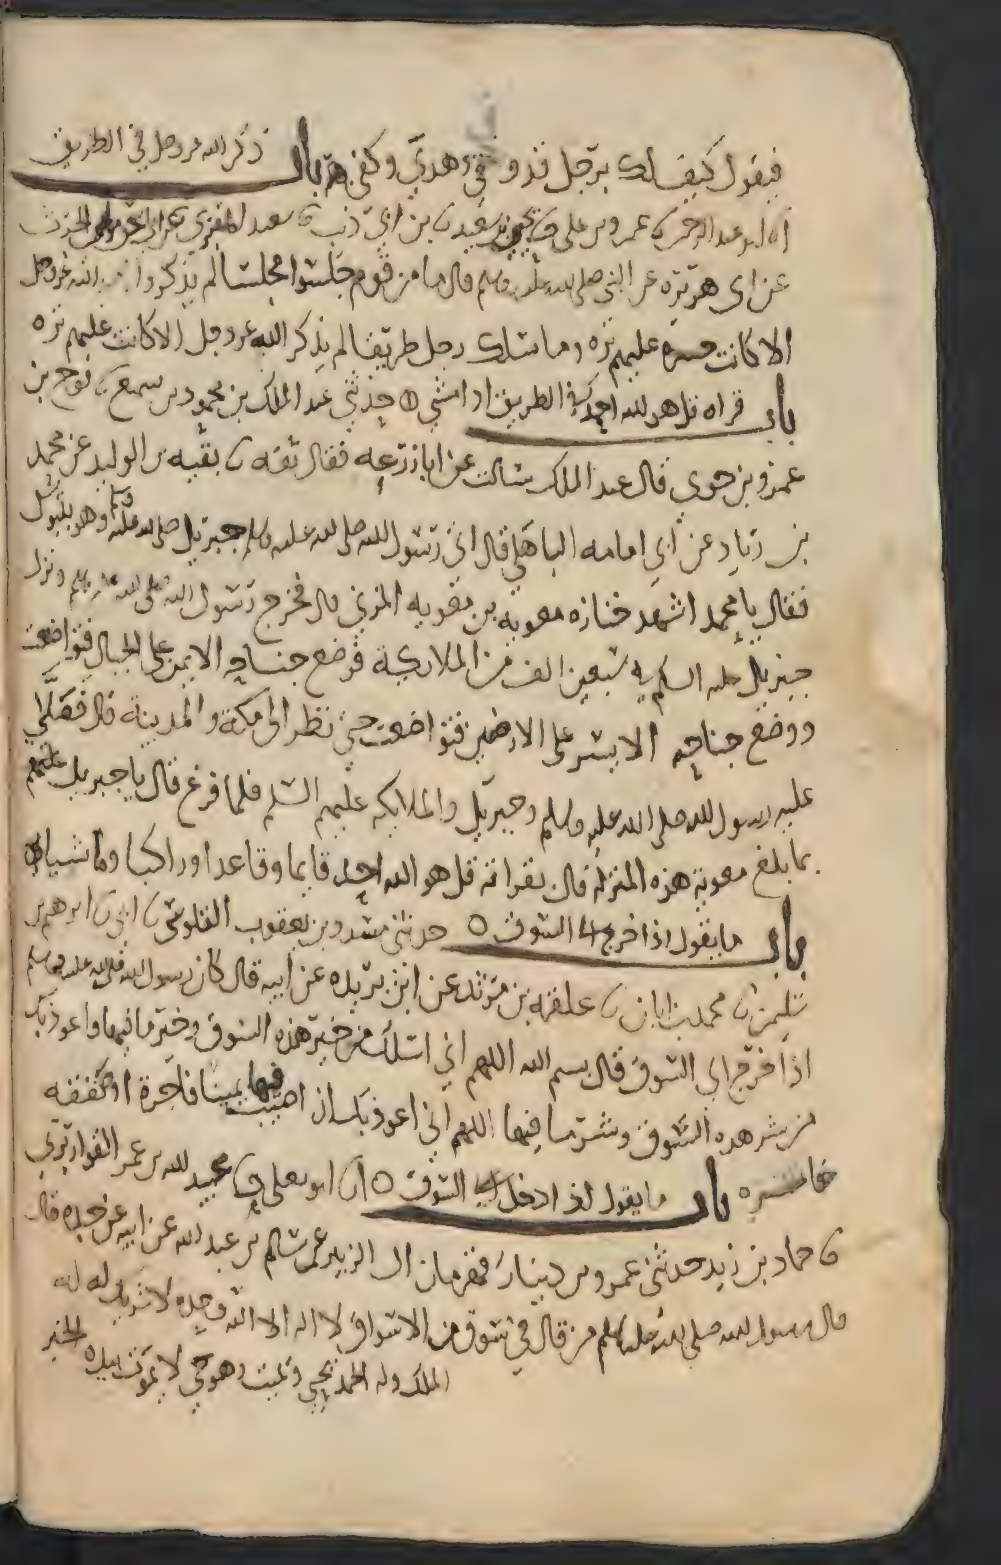 فيقول كيف لك برجل قد وقي وهدي وكفي باب ذكر الله عز وجل في الطريق
انا ابو عبد الرحمن نا عمرو بن علي نا يحيى بن سعيد نا بن ابي ذئب نا سعيد المقبري عن ابي اسحق مولى الحرث
عن ابي هريرة عن النبي صلى الله عليه وسلم قال ما من قوم جلسوا مجلسا لم يذكروا الله عز وجل
الا كانت عليهم تره وما سلك رجل طريقا لم يذكر الله عز وجل الا كانت عليهم تره
باب قراه قل هو الله احد في الطريق اذا مشي حدثني عبد الملك بن محمود بن سميع نا نوح بن
عمرو بن حوي قال عبد الملك سالت عن ابا زرعه فقال ثقه نا بقيه بن الوليد عن محمد
بن زياد عن ابي امامه الباهلي قال اتى رسول الله صلى الله عليه وسلم جبريل صلى الله عليه وسلم وهو بتبوك
فقال يا محمد اشهد جنازه معويه بن معويه المزني قال فخرج رسول الله صلى الله عليه وسلم ونزل
جبريل عليه السلم في سبعين الف من الملايكة فوضع جناحه الايمن على الجبال فتواضعت
ووضع جناحه الايسر على الارضين فتواضعت حتى نظر الى مكة والمدينة قال فصلى
عليه رسول الله صلى الله عليه وسلم وجبريل والملايكه عليهم السلم فلما فرغ قال يا جبريل عليهم
بما بلغ معوية هذه المنزله قال بقراته قل هو الله احد قايما وقاعدا وراكبا وماشيا
باب ما يقول اذا خرج الى السوق حدثني مسدد بن يعقوب القلوسي نا ابي نا ابرهيم بن
سليمن نا محمد بن ابان نا علقمه بن مرثد عن ابن بريده عن ابيه قال كان رسول الله صلى الله عليه وسلم
اذا خرج الى السوق قال بسم الله اللهم اني اسئلك من خير هذه السوق وخير ما فيها واعوذ بك
من شر هذه السوق وشر ما فيها اللهم اني اعوذ بك ان اصيب فيها يمينا فاجرة او صفقه
خاسره باب ما يقول اذا دخل السوق انا ابو يعلى نا عبيد الله بن عمر القواريري
نا حماد بن زيد حدثني عمرو بن دينار قهرمان ال الزبير عن سالم بن عبد الله عن ابيه عن جده قال
قال رسول الله صلى الله عليه وسلم من قال في سوق من الاسواق لا اله الا الله وحده لا شريك له له
الملك وله الحمد يحيي ويميت وهو حي لا يموت بيده الخير